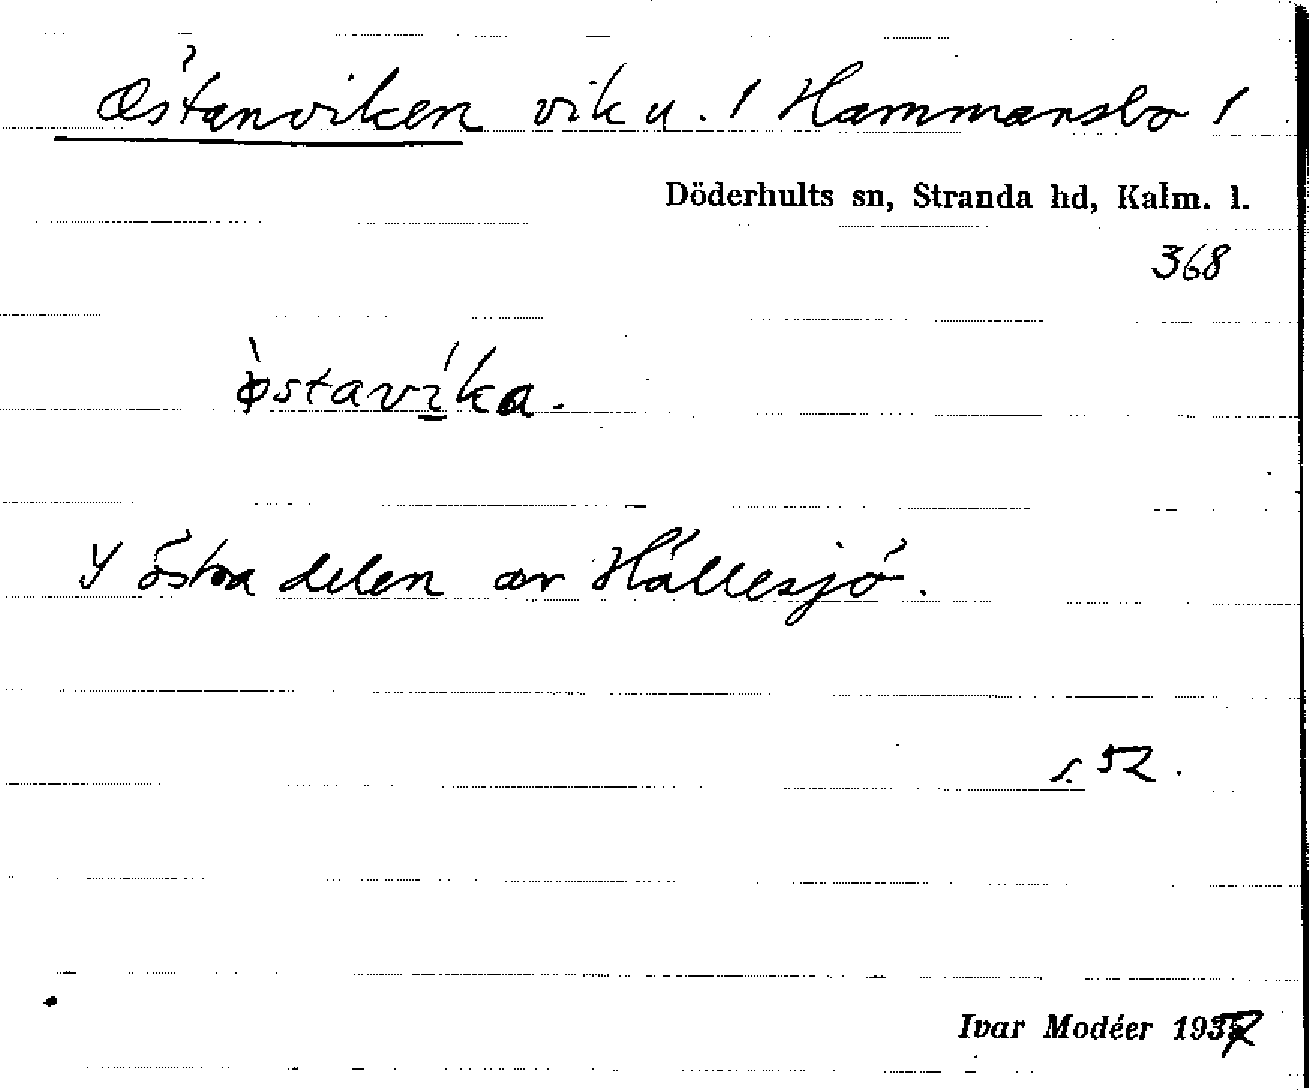 Östanviken vik u. / Hammarsbo /
Döderhults sn, Stranda hd, Kalm. l.
368
østavika.
I östra delen av Hållesjö.
s. 52.
Ivar Modéer 1937